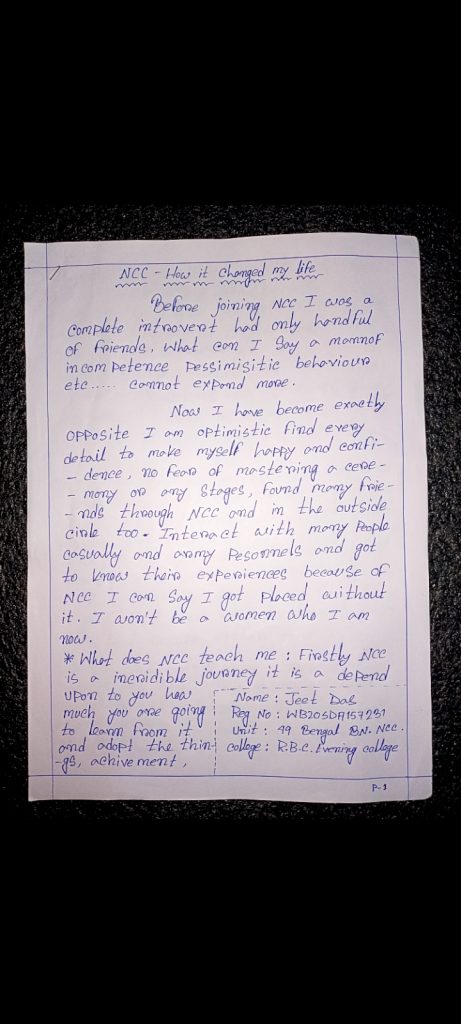 NCC - How it changed my life
Before joining NCC I was a
complete introvert had only handful
of friends, What can I Say a mannof
incompetence Pessimisitic behaviour
etc..... cannot expand more.
Now I have become exactly
opposite I am optimistic find every
detail to make myself happy and confi-
- dence, no fear of mastering a cere-
- mony or any Stages, found many frie-
- nds through NCC and in the outside
cirle too. Interact with many People
casually and army Pesonnels and got
to know their experiences because of
NCC I can Say I got placed without
it. I won't be a women who I am
now.
* What does NCC teach me : Firstly NCC
is a increidible journey it is a depend
upon to you how
much you are going
to learn from it
and adopt the thin-
-gs, achivement,
Name : Jeet Das
Reg No : WB20SDA157231
Unit : 49 Bengal BN. NCC.
college : R.B.C. Evening college
P-1